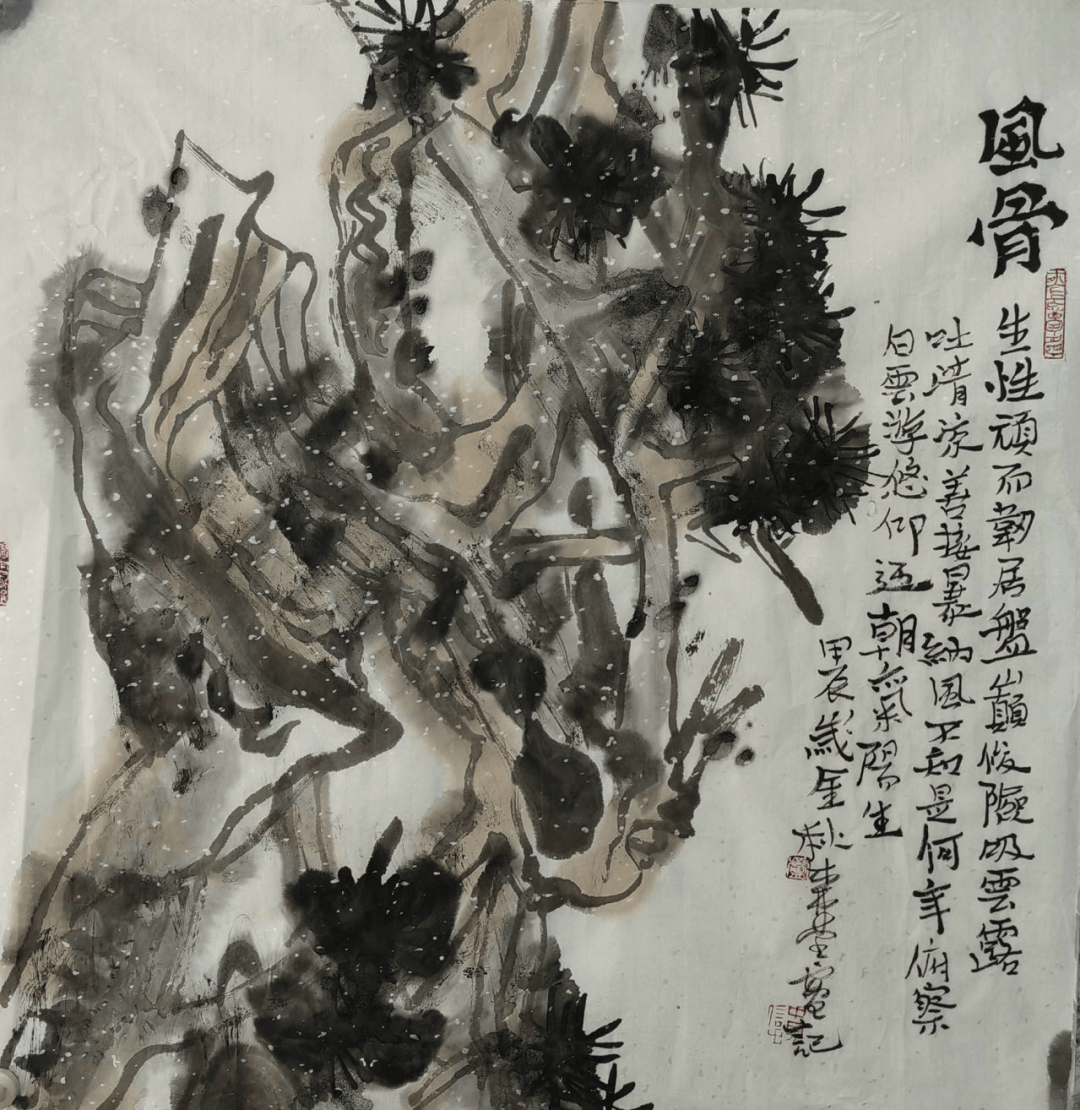 風骨
生性頑而韌居盤山巔俊險吸雲露
吐清流善接暴納風不知是何年俯察
白雲游悠仰迎朝氣陽生
甲辰歲金秋
記